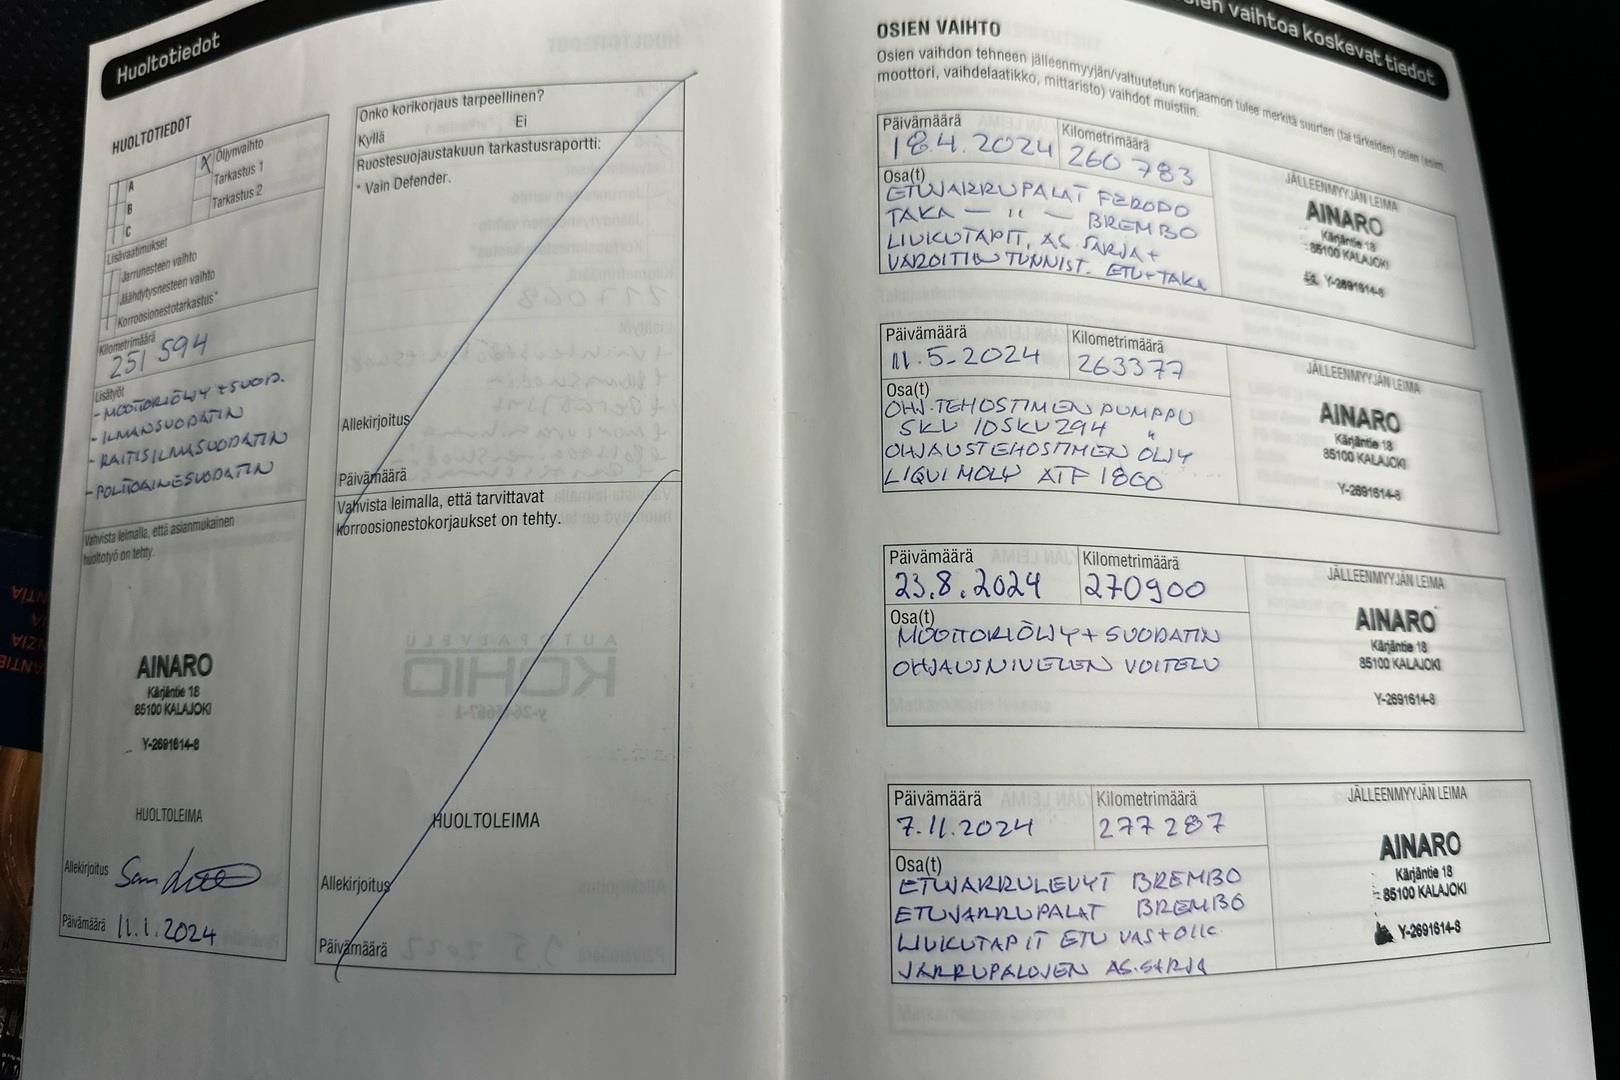 Huoltotiedot
HUOLTOTIEDOT
A
B
C
X Öljynvaihto
Tarkastus 1
Tarkastus 2
Lisävaatimukset
Jarrunesteen vaihto
Jäähdytysnesteen vaihto
Korroosionestotarkastus*
Kilometrimäärä
251 594
Lisätyöt
- MOOTTORIÖLJY + SUOD.
- ILMANSUODATIN
- RAITISILMASUODATIN
- POLTTOAINESUODATIN
Vahvista leimalla, että asianmukainen
huoltotyö on tehty.
AINARO
Kärjäntie 18
85100 KALAJOKI
Y-2691614-8
HUOLTOLEIMA
Allekirjoitus
Päivämäärä 11.1.2024
Onko korikorjaus tarpeellinen?
Kyllä Ei
Ruostesuojaustakuun tarkastusraportti:
* Vain Defender.
Allekirjoitus
Päivämäärä
Vahvista leimalla, että tarvittavat
korroosionestokorjaukset on tehty.
HUOLTOLEIMA
Allekirjoitus
Päivämäärä
osien vaihtoa koskevat tiedot
OSIEN VAIHTO
Osien vaihdon tehneen jälleenmyyjän/valtuutetun korjaamon tulee merkitä suurten (tai tärkeiden) osien (esim.
moottori, vaihdelaatikko, mittaristo) vaihdot muistiin.
Päivämäärä Kilometrimäärä
18.4.2024 260 783
Osa(t)
ETUJARRUPALAT FERODO
TAKA — " — BREMBO
LIUKUTAPIT, AS. SARJA +
VAROITIN TUNNIST. ETU+TAKA
JÄLLEENMYYJÄN LEIMA
AINARO
Kärjäntie 18
85100 KALAJOKI
Y-2691614-8
Päivämäärä Kilometrimäärä
11.5-2024 263377
Osa(t)
OHJ.TEHOSTIMEN PUMPPU
SKV 10SKV294 "
OHJAUSTEHOSTIMEN ÖLJY
LIQUI MOLY ATF 1800
JÄLLEENMYYJÄN LEIMA
AINARO
Kärjäntie 18
85100 KALAJOKI
Y-2691614-8
Päivämäärä Kilometrimäärä
23.8.2024 270900
Osa(t)
MOOTTORIÖLJY + SUODATIN
OHJAUSNIVELEN VOITELU
JÄLLEENMYYJÄN LEIMA
AINARO
Kärjäntie 18
85100 KALAJOKI
Y-2691614-8
Päivämäärä Kilometrimäärä
7.11.2024 277 287
Osa(t)
ETUJARRULEVYT BREMBO
ETUJARRUPALAT BREMBO
LIUKUTAPIT ETU VAS+OIK
JARRUPALOJEN AS.SARJA
JÄLLEENMYYJÄN LEIMA
AINARO
Kärjäntie 18
85100 KALAJOKI
Y-2691614-8